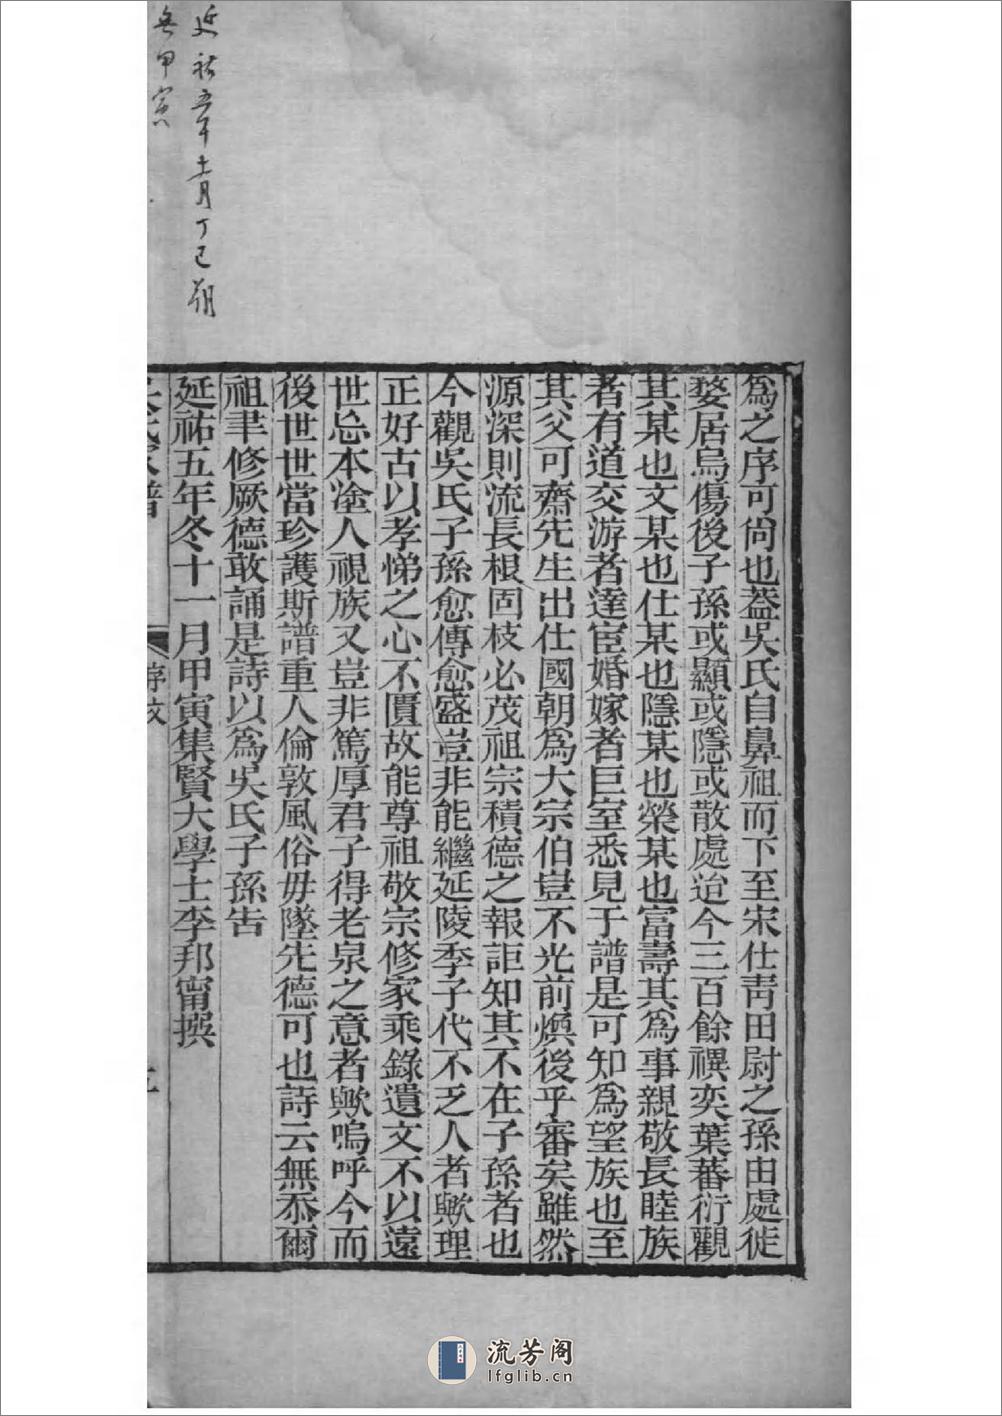 為之序可尙也葢吳氏自鼻祖而下至宋仕靑田尉之孫由處徙
婺居烏傷後子孫或顯或隱或散處迨今三百餘禩奕葉蕃衍觀
其某也文某也仕某也隱某也榮某也富壽其為事親敬長睦族
者有道交游者達宦婚嫁者巨室悉見于譜是可知為望族也至
其父可齋先生出仕國朝為大宗伯豈不光前煥後乎審矣雖然
源深則流長根固枝必茂祖宗積德之報詎知其不在子孫者也
今觀吳氏子孫愈傳愈盛豈非能繼延陵季子代不乏人者歟理
正好古以孝悌之心不匱故能尊祖敬宗修家乘錄遺文不以遠
世忘本塗人視族又豈非篤厚君子得老泉之意者歟嗚呼今而
後世世當珍護斯譜重人倫敦風俗毋墜先德可也詩云無忝爾
祖聿修厥德敢誦是詩以為吳氏子孫告
延祐五年冬十一月甲寅集賢大學士李邦甯撰
吳氏家譜
序文
延祐五年十一月丁巳朔
無甲寅
流芳阁
lfglib.cn